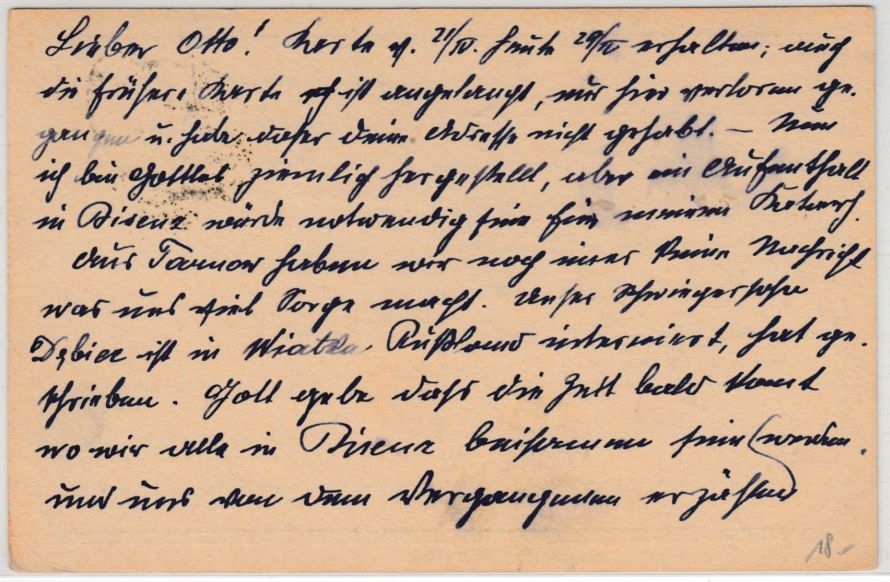 Lieber Otto! Karte v. 21/IV. heute 29/IV erhalten; auch
die frühere Karte ist angelangt, nur hier verloren ge-
gangen u. habe daher deine Adresse nicht gehabt. — Nun
ich bin Gottlob ziemlich hergestellt, aber ein Aufenthalt
in Bisenz würde notwendig sein für meinen Katarrh.
Aus Tarnow haben wir noch immer keine Nachricht
was uns viel Sorge macht. Unser Schwiegersohn
Dębicc ist in Wiatka Rußland interniert, hat ge-
schrieben. Gott gebe dass die Zeit bald komt
wo wir alle in Bisenz beisammen sein werden.
und uns von dem Vergangenen erzählen
18.-